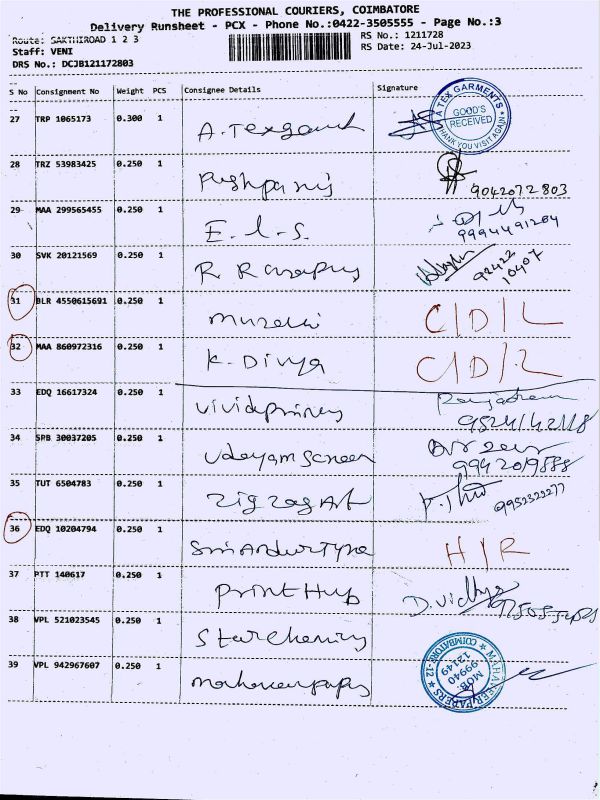 THE PROFESSIONAL COURIERS, COIMBATORE
Delivery Runsheet - PCX - Phone No.:0422-3505555 - Page No.:3
Route: SAKTHIROAD 1 2 3
RS No.: 1211728
Staff: VENI
RS Date: 24-Jul-2023
DRS No.: DCJB121172803
S No Consignment No Weight PCS Consignee Details Signature
27 TRP 1065173 0.300 1 A. Tex
A TEX GARMENTS
GOOD'S RECEIVED
THANK YOU VISIT AGAIN
28 TRZ 53983425 0.250 1
9042072803
29 MAA 299565455 0.250 1 E.L.S.
9994491204
30 SVK 20121569 0.250 1 R R
92422
10407
31 BLR 4550615691 0.250 1 murali C/D/L
32 MAA 860972316 0.250 1 K. Divya C/D/L
33 EDQ 16617324 0.250 1
34 SRB 30037205 0.250 1 Udayam Screen
9942019888
35 TUT 6504783 0.250 1 Zig zag Art
9952322277
36 EDQ 10204794 0.250 1 H/R
37 PTT 140617 0.250 1 Print Hub D. Vidhya
38 VPL 521023545 0.250 1
39 VPL 942967607 0.250 1
MAHAVEER PAPERS
COIMBATORE-12
MOB: 99940 12149